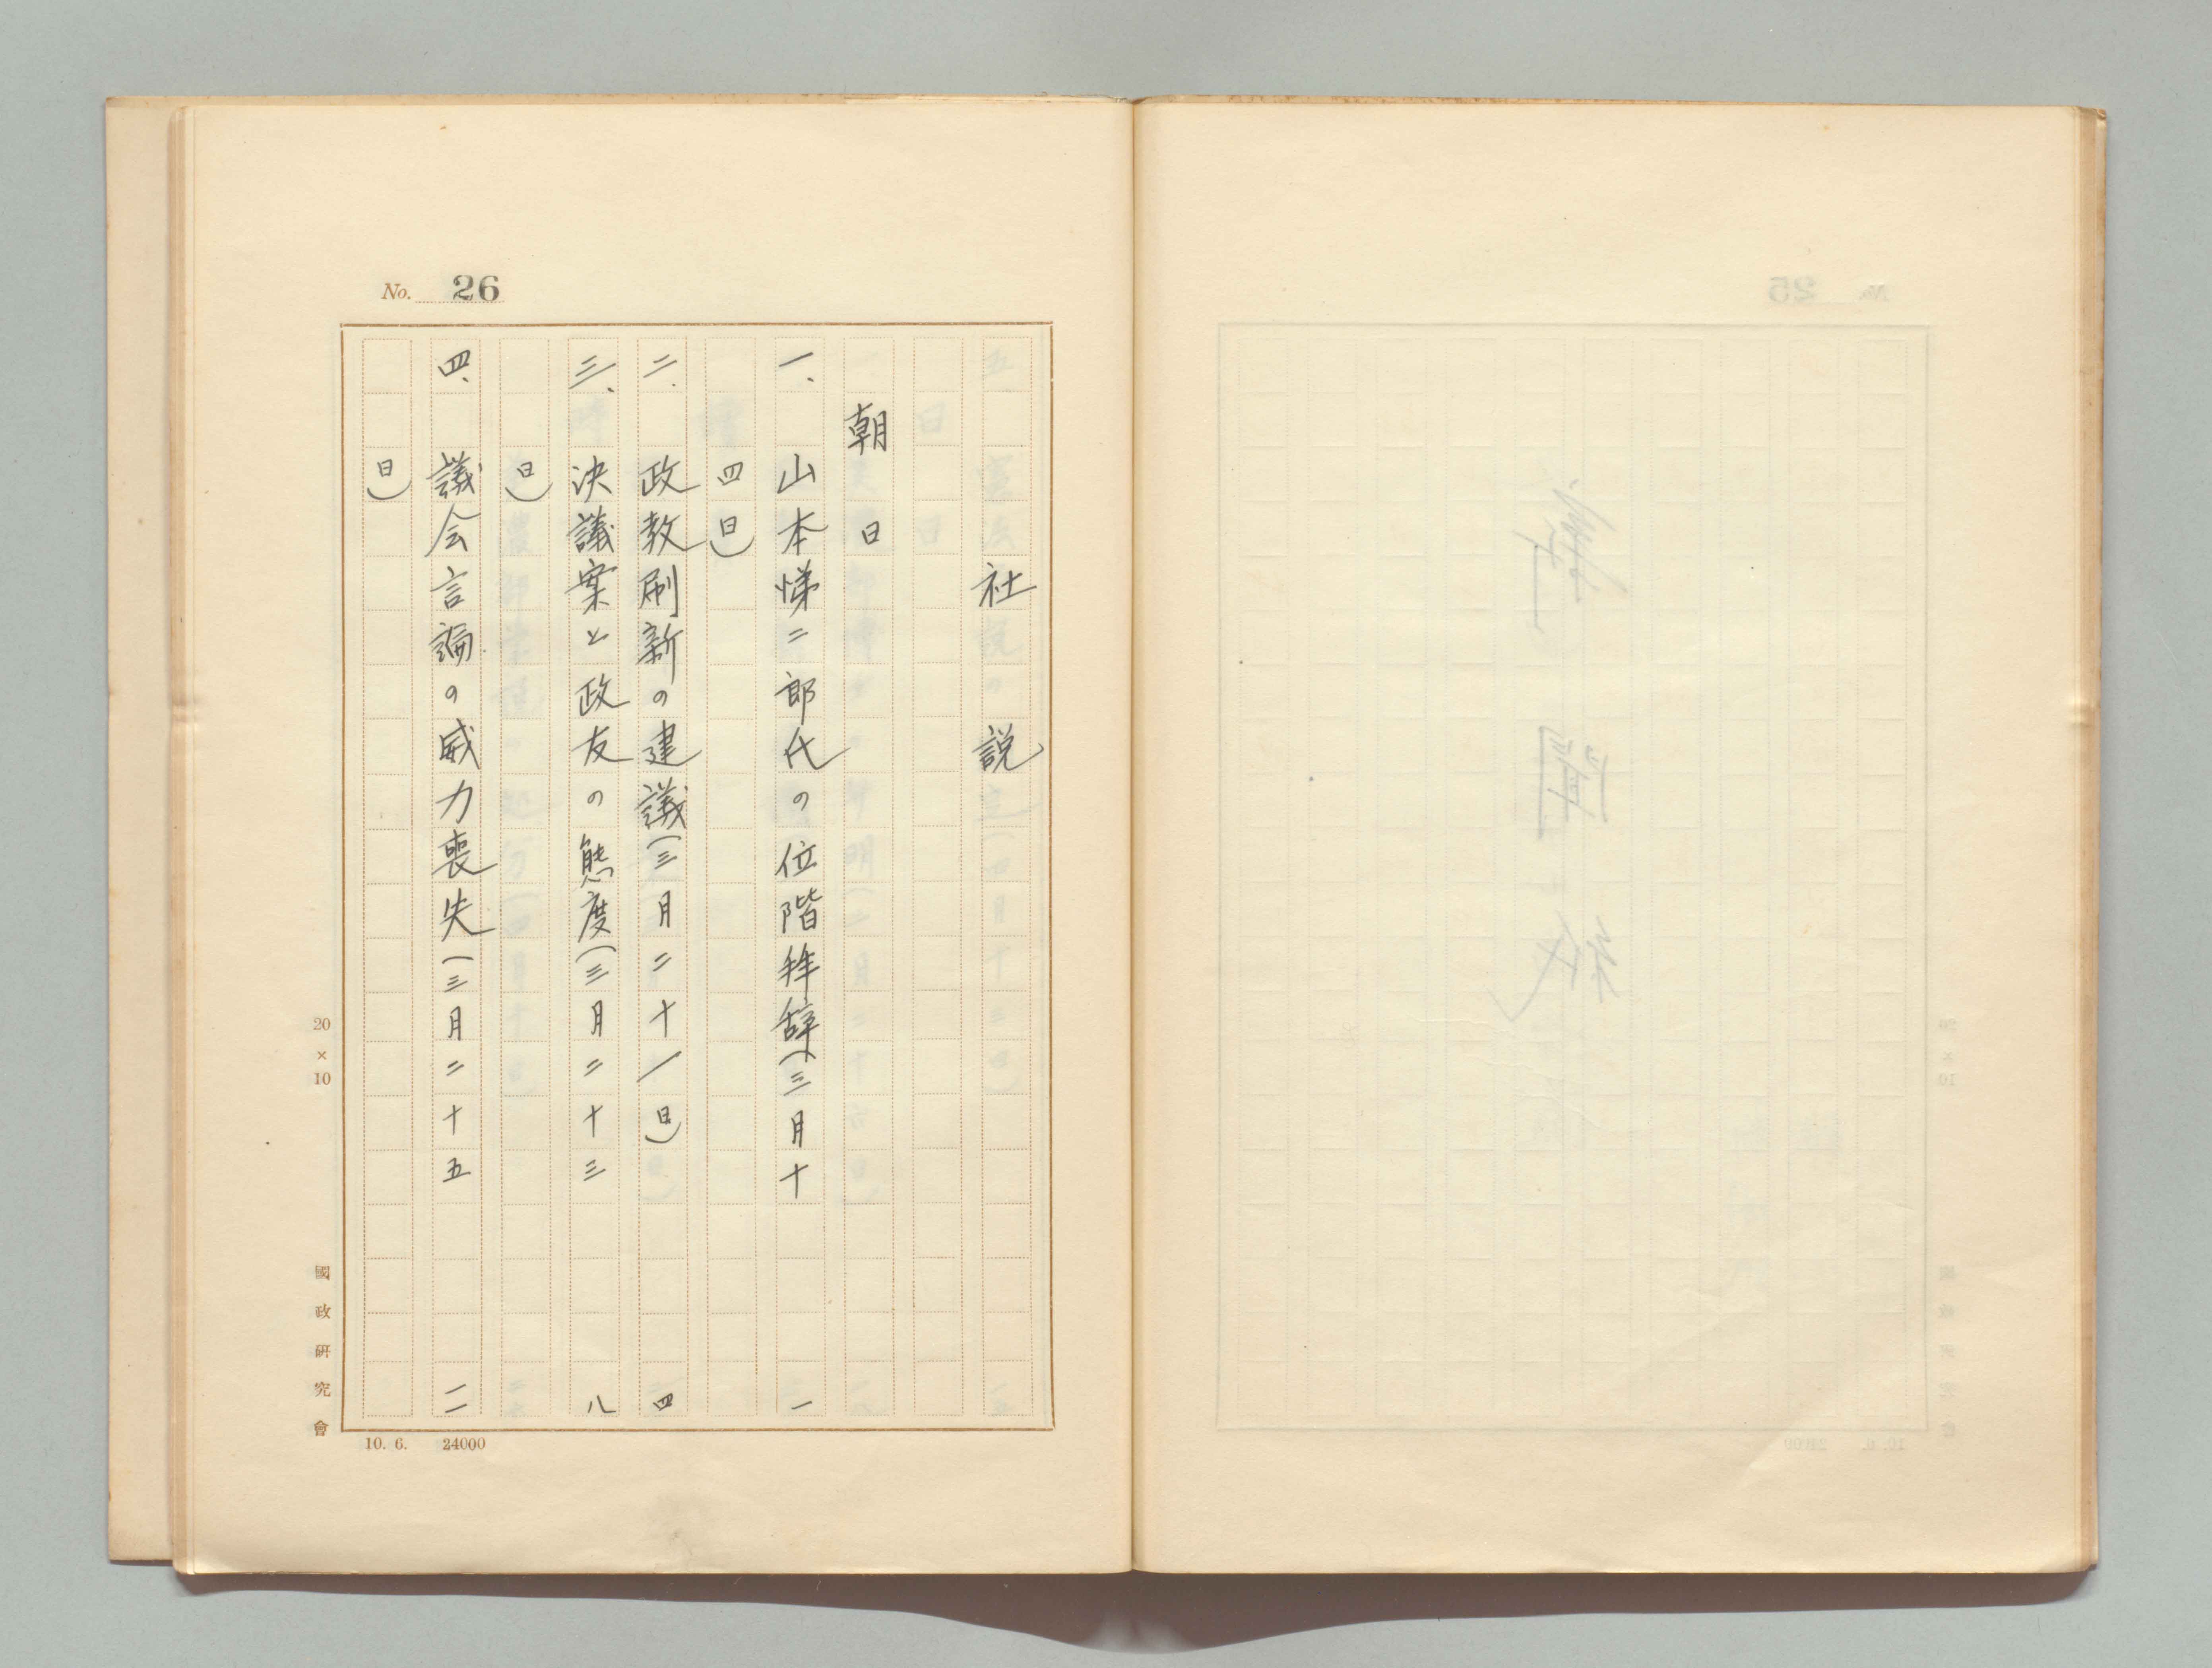 No. 26
社説
朝日
一、山本悌二郎氏の位階拝辞(三月十
四日) 一
二、政教刷新の建議(三月二十一日) 四
三、決議案と政友の態度(三月二十三
日) 八
四、議会言論の威力喪失(三月二十五
日) 一一
20×10
國政研究會
10. 6. 24000